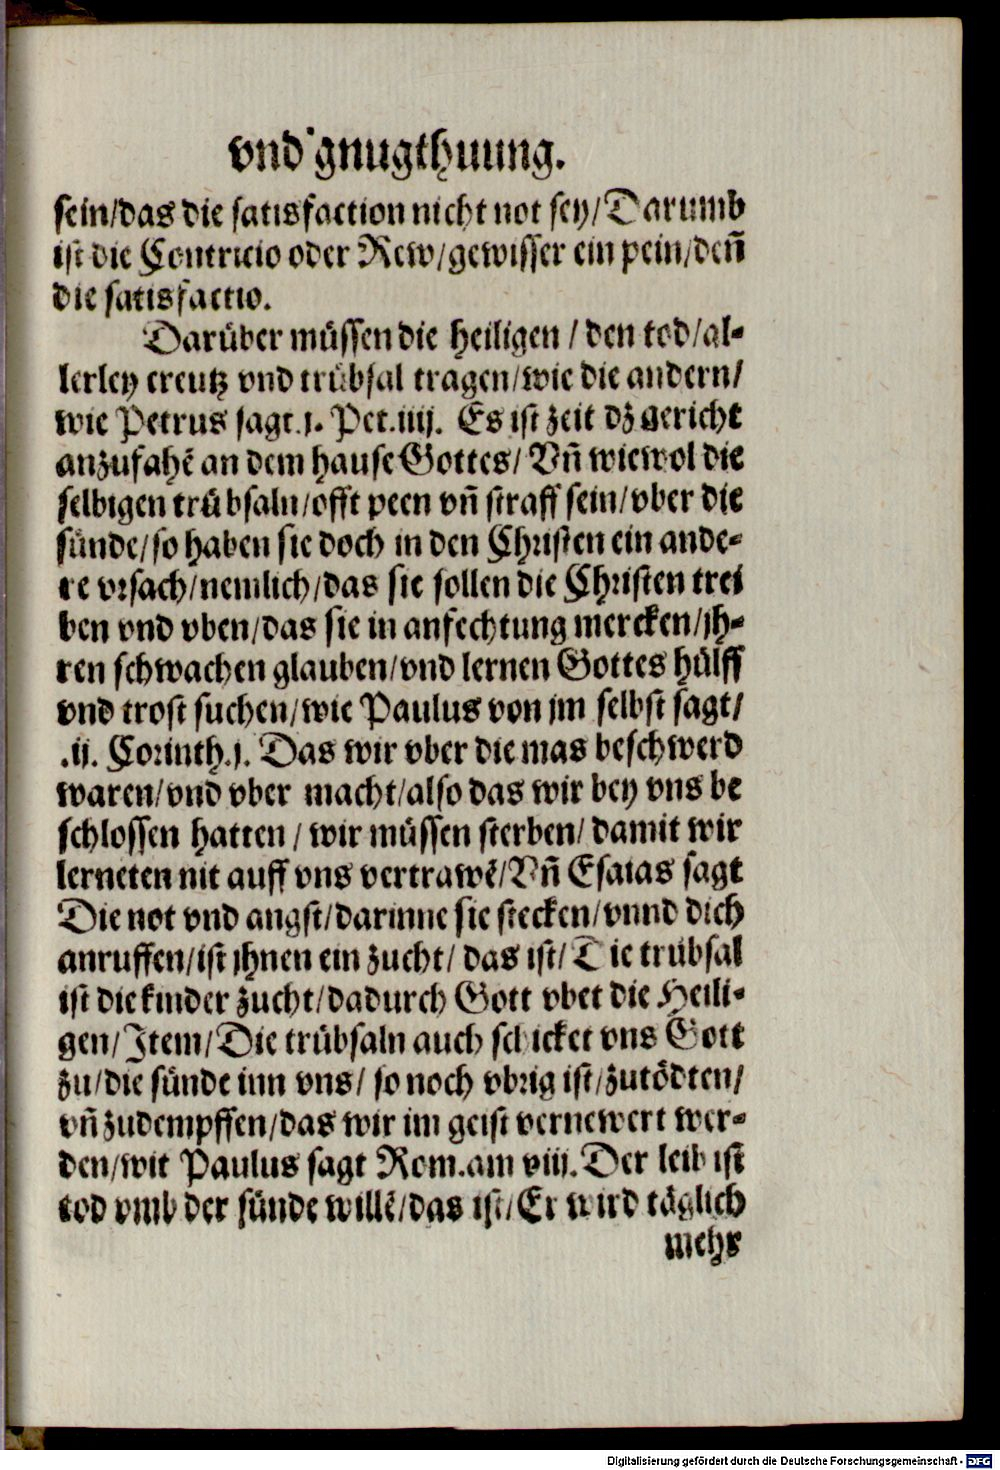 vnd gnugthuung.
sein/das die satisfaction nicht not sey/Darumb
ist die Contricio oder Rew/gewisser ein pein/deñ
die satisfactio.
Darüber müssen die heiligen/den tod/al-
lerley creutz vnd trübsal tragen/wie die andern/
wie Petrus sagt.j. Pet.iiij. Es ist zeit dz gericht
anzufahē an dem hause Gottes/Vñ wiewol die
selbigen trübsaln/offt peen vñ straff sein/vber die
sünde/so haben sie doch in den Christen ein ande-
re vrsach/nemlich/das sie sollen die Christen trei
ben vnd vben/das sie in anfechtung mercken/jh-
ren schwachen glauben/vnd lernen Gottes hülff
vnd trost suchen/wie Paulus von jm selbst sagt/
.ij. Corinth.j. Das wir vber die mas beschwerd
waren/vnd vber macht/also das wir bey vns be
schlossen hatten/wir müssen sterben/damit wir
lerneten nit auff vns vertrawē/Vñ Esaias sagt
Die not vnd angst/darinne sie stecken/vnnd dich
anruffen/ist jhnen ein zucht/das ist/Die trübsal
ist die kinder zucht/dadurch Gott vbet die Heili-
gen/Item/Die trübsaln auch schicket vns Gott
zu/die sünde inn vns/so noch vbrig ist/zutödten/
vñ zudempffen/das wir im geist vernewert wer-
den/wit Paulus sagt Rom.am viij.Der leib ist
tod vmb der sünde willē/das ist/Er wird täglich
mehr
Digitalisierung gefördert durch die Deutsche Forschungsgemeinschaft - DFG